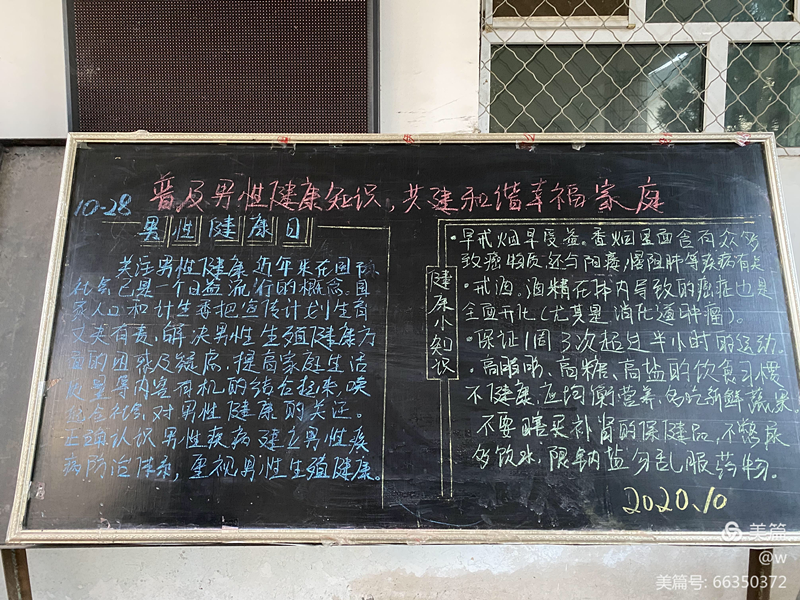 普及男性健康知识，共建和谐幸福家庭
10-28
男性健康日
关注男性健康近年来在国际
社会已是一个日益流行的概念。国
家人口和计生委把宣传计划生育
丈夫有责，解决男性生殖健康方
面的困惑及疑虑，提高家庭生活
质量等内容有机的结合起来，唤
起全社会对男性健康的关注。
正确认识男性疾病建立男性疾
病防治体系，重视男性生殖健康。
健康小知识
·早戒烟早受益。香烟里面含有众多
致癌物质，还与阳痿，慢阻肺等疾病有关
·戒酒，酒精在体内导致的癌症也是
全面开花(尤其是消化道肿瘤)。
·保证1周3次超过半小时的运动。
·高脂肪、高糖、高盐的饮食习惯
不健康，应均衡营养，多吃新鲜蔬果。
不要瞎买补肾的保健品，不憋尿
多饮水，限钠盐勿乱服药物。
2020.10
美篇
@w
美篇号: 66350372